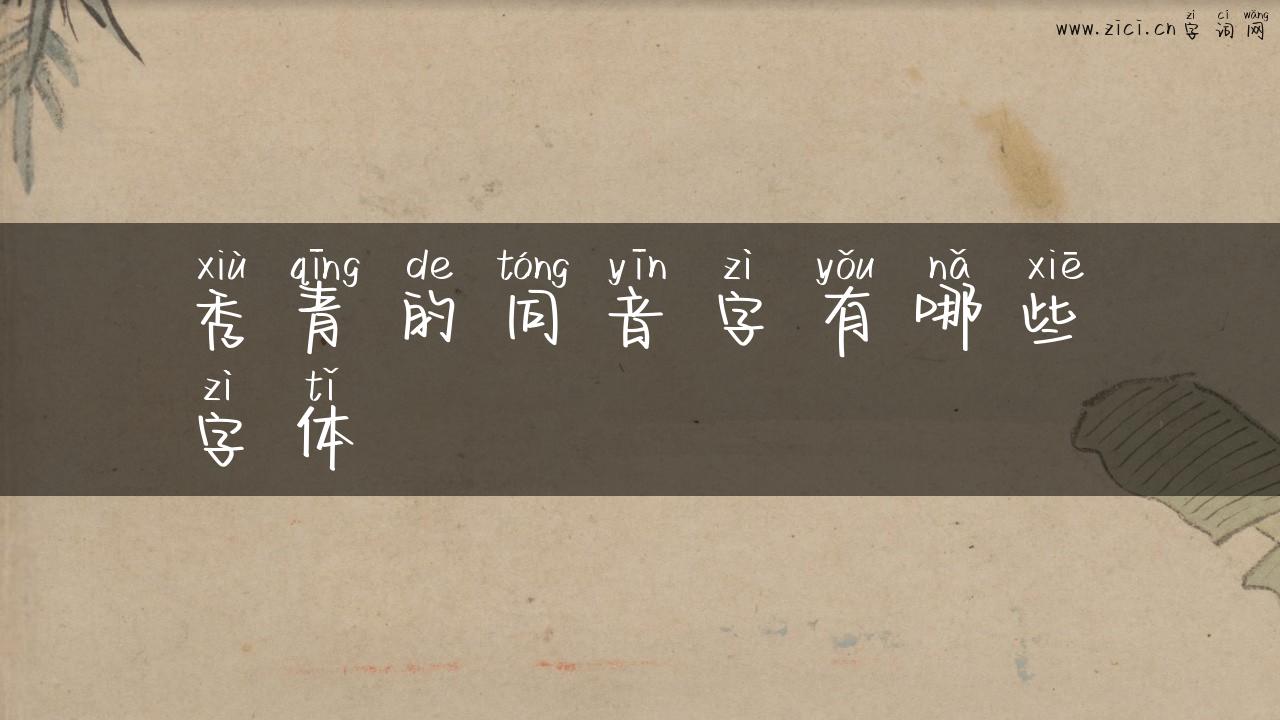 zì cí wǎng
www.zici.cn 字 词 网
xiù qīng de tóng yīn zì yǒu nǎ xiē
秀 青 的 同 音 字 有 哪 些
zì tǐ
字 体